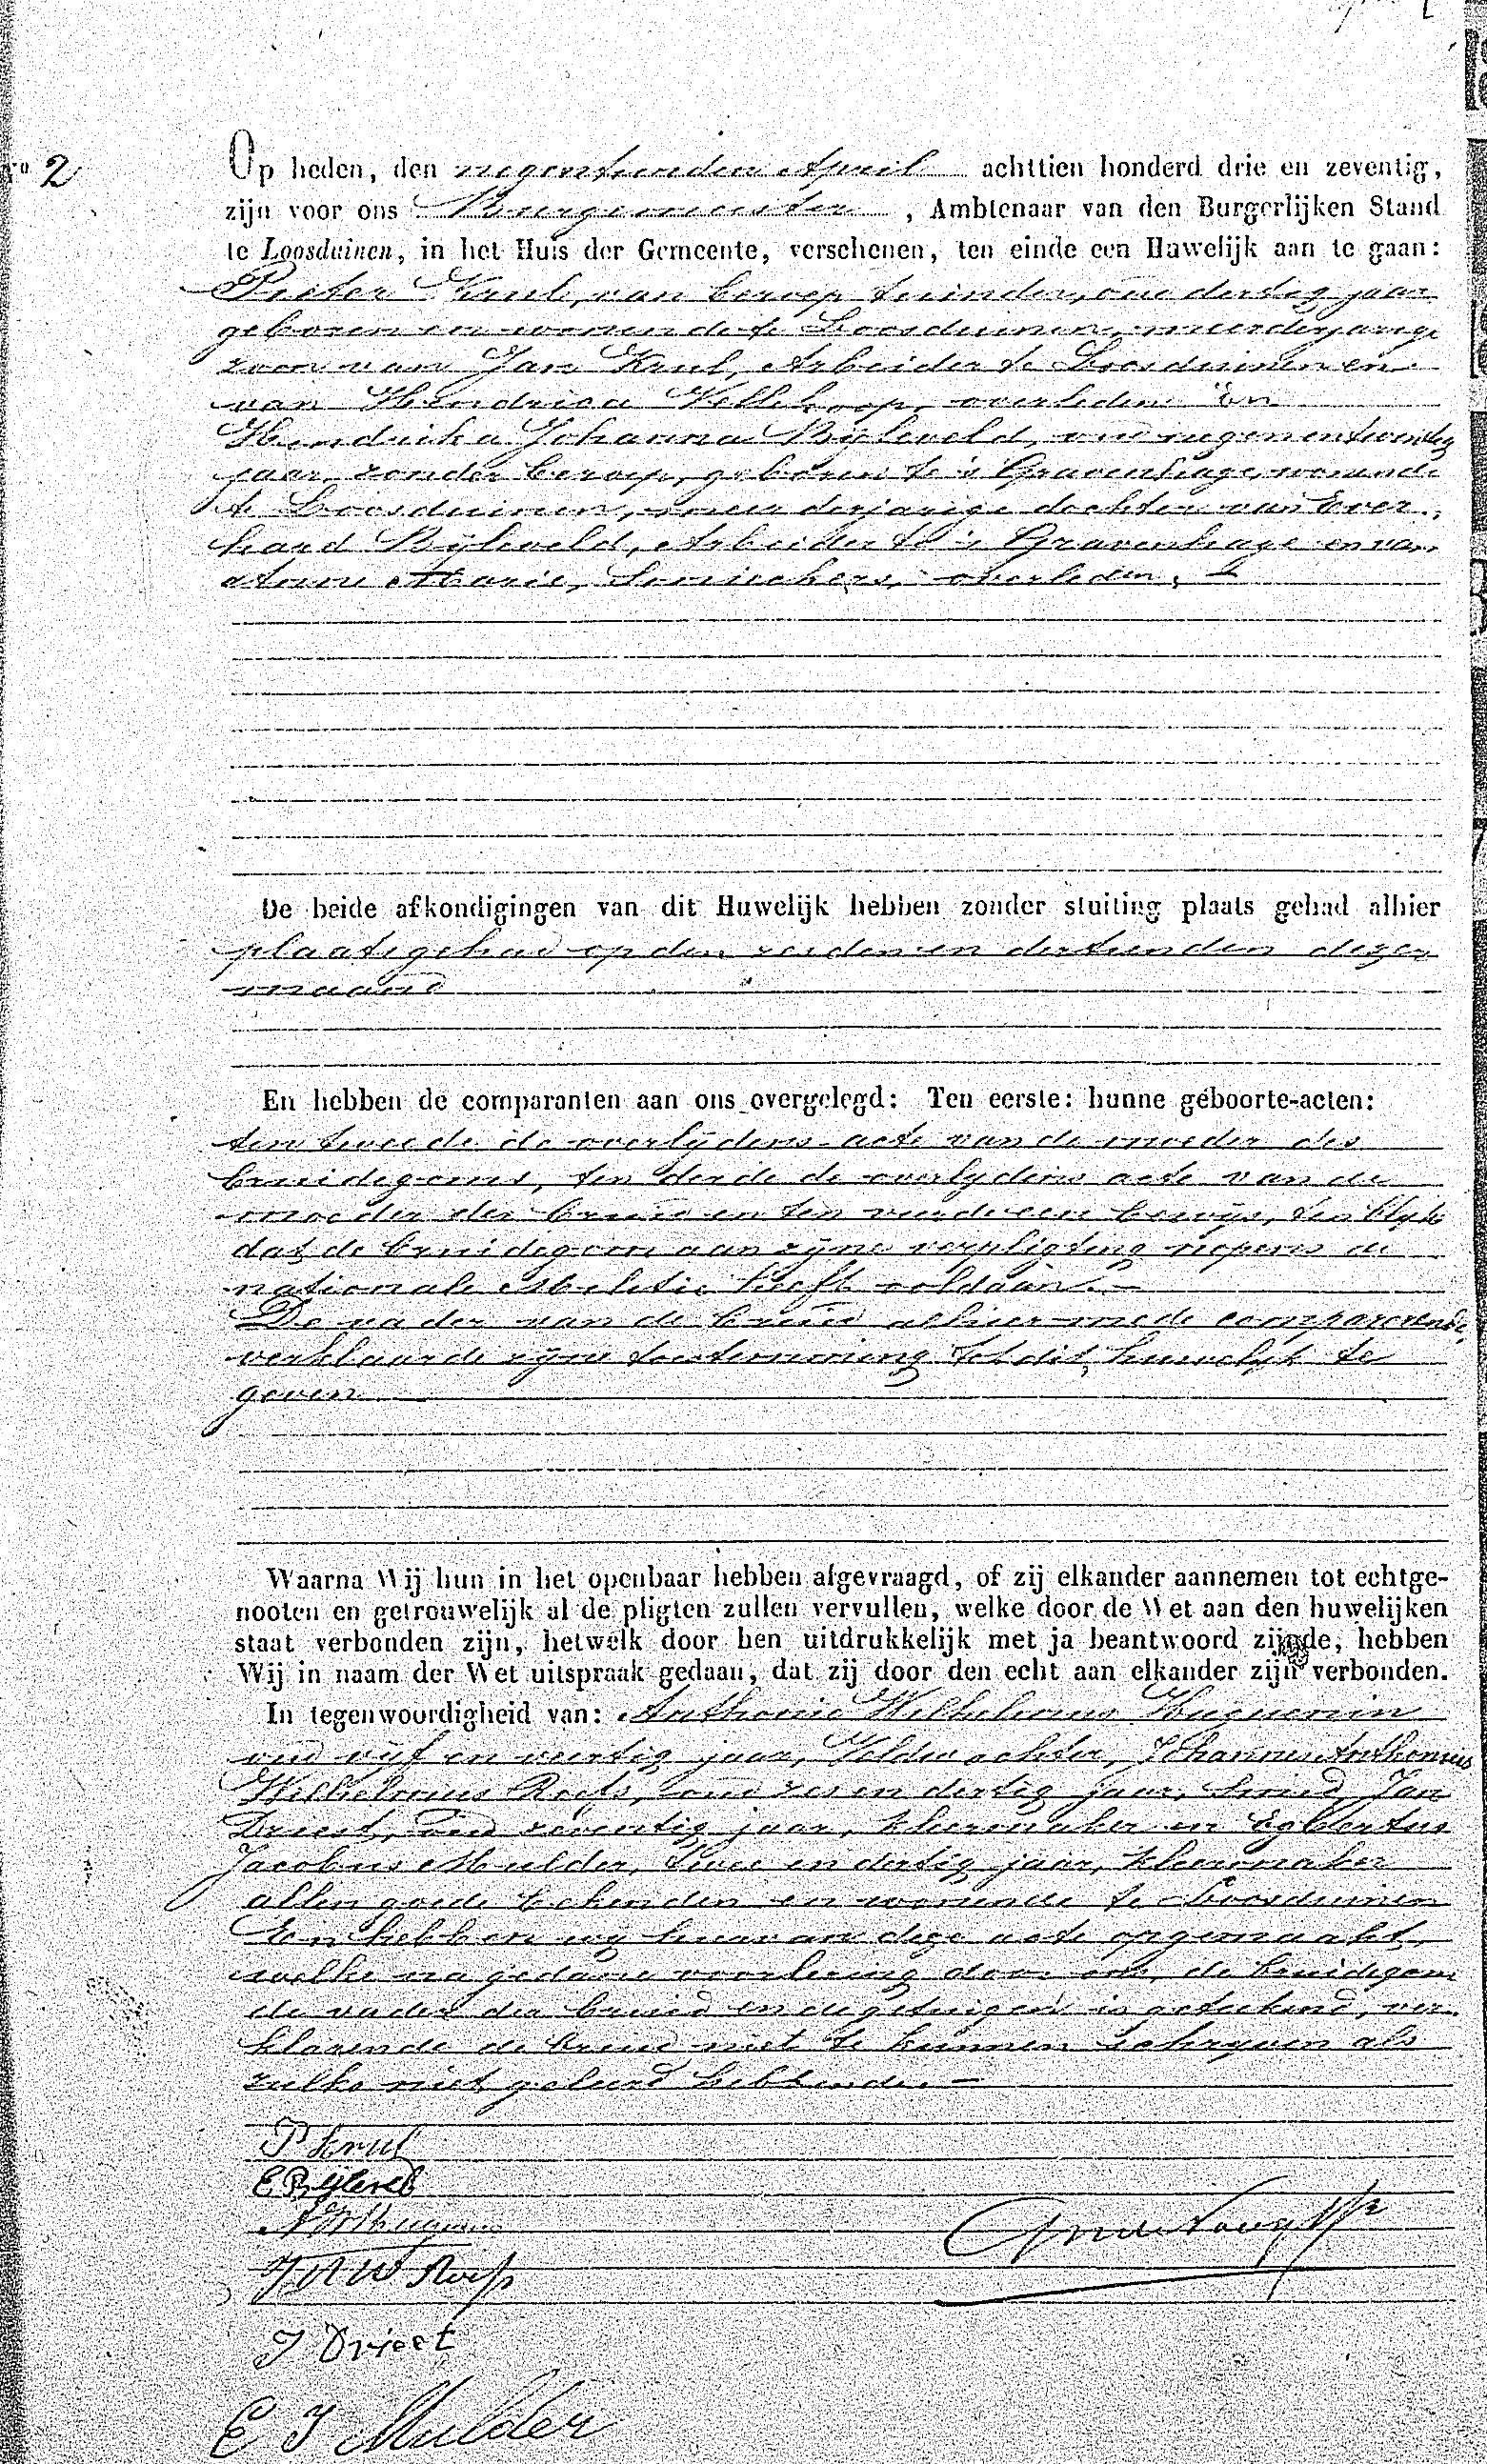 No 2
Op heden, den negentienden April achttien honderd drie en zeventig,
zijn voor ons Burgemeester, Ambtenaar van den Burgerlijken Stand
te Loosduinen, in het Huis der Gemeente, verschenen, ten einde een Huwelijk aan te gaan:
Pieter Krul, van beroep tuinder, oud dertig jaar
geboren en wonende te Loosduinen, meerderjarige
zoon van Jan Krul, Arbeider te Loosduinen en
van Hendrica Vellekoop, overleden en
Hendrika Johanna Bijleveld, oud negen en twintig
jaar, zonder beroep, geboren te 's Gravenhage, wonende
te Loosduinen, meerderjarige dochter van Ever-
hard Bijleveld, Arbeider te 's Gravenhage en van
Marie, overleden.
De beide afkondigingen van dit Huwelijk hebben zonder stuiting plaats gehad alhier
plaats gehad op den zesden en dertienden dezer
maand
En hebben de comparanten aan ons overgelegd: Ten eerste: hunne geboorte-acten:
ten tweede de overlijdens-acte van de moeder des
bruidegoms, ten derde de overlijdens acte van de
moeder der bruid en ten vierde een bewijs, ten blijk
dat de bruidegom aan zijne verpligting nopens de
nationale Militie heeft voldaan.
De vader van de bruid alhier mede comparerende,
verklaarde zijne toestemming tot dit huwelijk te
geven
Waarna Wij hun in het openbaar hebben afgevraagd, of zij elkander aannemen tot echtge-
nooten en getrouwelijk al de pligten zullen vervullen, welke door de Wet aan den huwelijken
staat verbonden zijn, hetwelk door hen uitdrukkelijk met ja beantwoord zijnde, hebben
Wij in naam der Wet uitspraak gedaan, dat zij door den echt aan elkander zijn verbonden.
In tegenwoordigheid van: Anthonie Wilhelmus Huguenin
oud vijf en veertig jaar, Veldwachter, Johannes Anthonius
Wilhelmus Roefs, oud zes en dertig jaar, Smid, Jan
Driest, oud zeventig jaar, kleermaker en Egbertus
Jacobus Mulder, twee en dertig jaar, kleermaker
allen goede bekenden en wonende te Loosduinen
En hebben wij hiervan deze acte opgemaakt,
welke na gedane voorlezing door ons, de bruidegom
de vader der bruid en de getuigen is geteekend, ver-
klarende de bruid niet te kunnen schrijven als
zulks niet geleerd hebbende.
P Krul
E Bijleveld
A W Huguenin
J A W Roefs
J Driest
E J Mulder